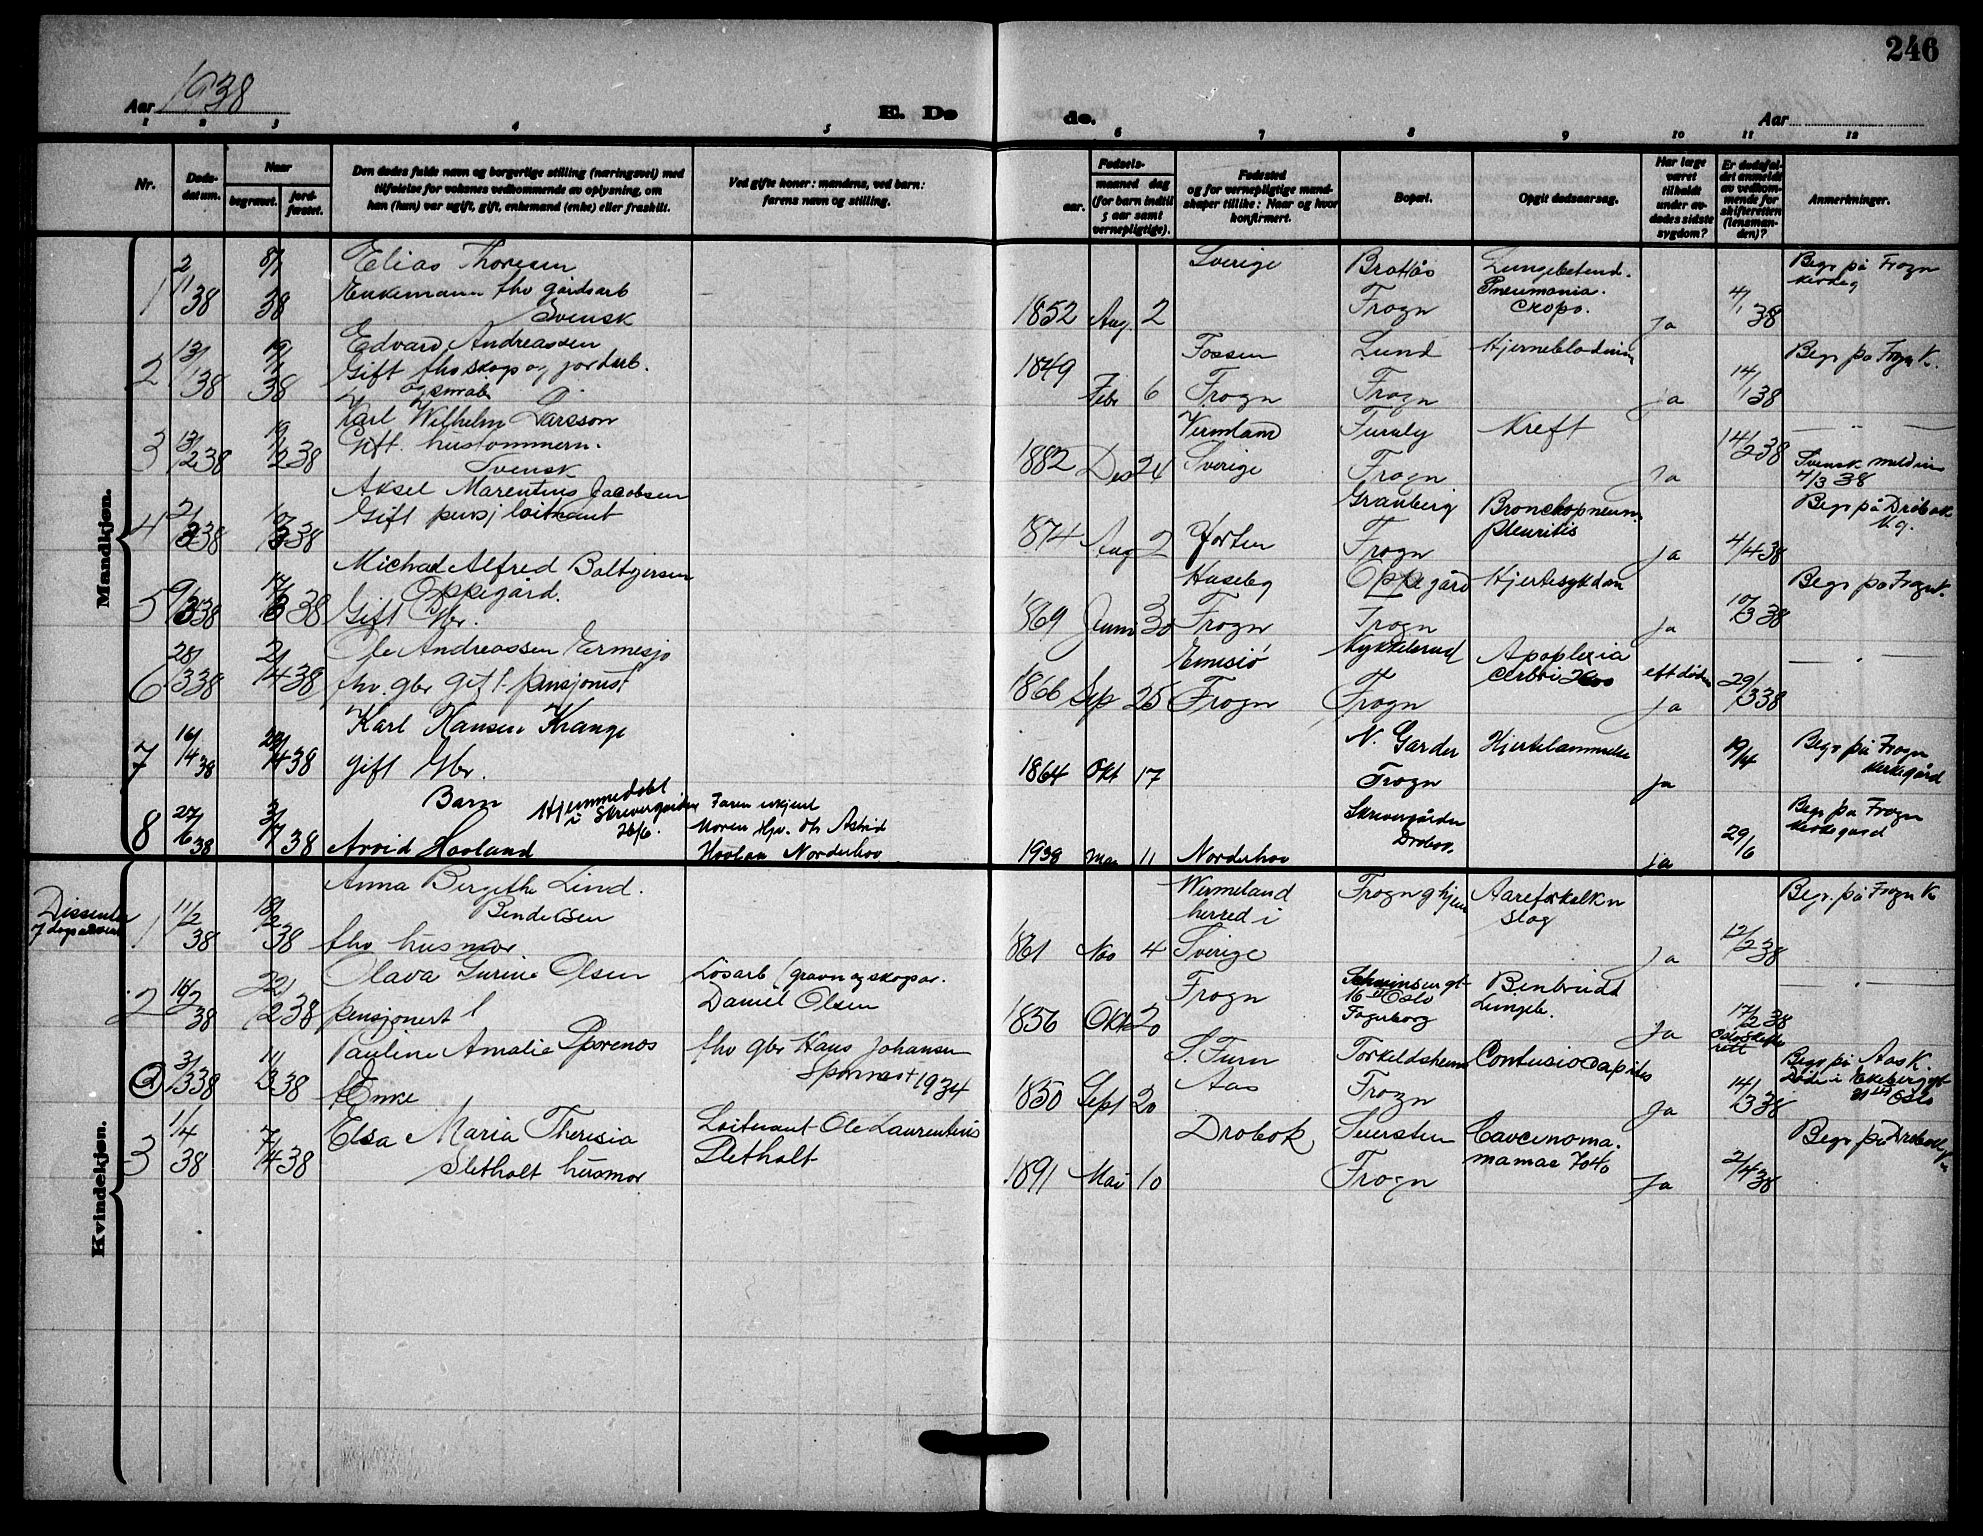 246
Aar 1938
E. Dø
de.
Aar
1 2 3 4 5 6 7 8 9 10 11 12
Nr.
Døds-
datum.
Naar
begravet.
jord-
fæstet.
Den dødes fulde navn og borgerlige stilling (næringsvei) med
tilføielse for voksnes vedkommende av oplysning, om
han (hun) var ugift, gift, enkemand (enke) eller fraskilt.
Ved gifte koner: mandens, ved barn:
farens navn og stilling.
Fødsels-
aar.
maaned dag
(for barn indtil
5 aar samt
vernepligtige).
Fødested
og for vernepligtige mand-
skaper tillike: Naar og hvor
konfirmert.
Bopæl.
Opgit dødsaarsag.
Har læge
været
tilkaldt
under av-
dødes sidste
sygdom?
Er dødsfal-
det anmeldt
av vedkom-
mende for
skifteretten
(lensman-
den)?
Anmerkninger.
Mandkjøn.
1 2/1 38 8/1 38 Elias Thoresen
Enkemann fhv gårdsarb
Svensk
1852 Aug. 2 Sverige Brottås
Frogn
Lungebetend.
Pneumonia.
Cropo.
Ja 4/1 38 Begr på Frogn
kirkeg
2 13/1 38 19/1 38 Edvard Andreassen
Gift fhv skogs og jordarb.
1849 Febr 6 Fossen
Frogn
Lund
Frogn
Hjerneblødning
ja 14/1 38 Begr på Frogn K.
3 13/2 38 19/2 38 Karl Wilhelm Larsson
Gift. hustømmerm.
Svensk
1882 Des 24 Vermland
Sverige
Furuly
Frogn
Kreft
Ja 14/2 38
Svensk melding
7/3 38
4 2/3 38 10/3 38 Aksel Marentius Jacobsen
Gift pensj løitnant
1874 Aug 2 Horten Granberg
Frogn
Bronchopneum.
pleuritis
ja 4/4 38 Begr på Drøbak
K.g.
5 9/3 38 17/3 38 Michael Alfred Baltzersen
Oppegård.
Gift Gbr.
1869 Juni 30 Huseby
Frogn
Oppegård
Frogn
Hjertesykdom
ja 10/3 38 Begr på Frogn K.
6 28/3 38 2/4 38 Ole Andreassen Ermesjø
fhv. gbr gift pensjonist
1866 Sep 25 Emisiø
Frogn
Nykkelerud
Frogn
Apoplexia
eft døden
ja 29/3 38
7 16/4 38 23/4 38 Karl Hansen Krange
gift Gbr.
1864 Okt 17 N. Garder
Frogn
Hjertelammelse
ja 19/4 Begr på Frogn
kirkegård
8 27/6 38 3/7 38 Barn
Hjemmedøbt
i Skrivergården
26/6.
Arvid Hovland
Faren ukjent
Moren Hpv. Astrid
Hovland Norderhov
1938 mai 11 Norderhov Skrivergården
Drøbak.
ja 29/6 Begr på Frogn
kirkegård
Kvindekjøn.
Dissenter
7 dags advent
1 11/2 38 18/2 38 Anna Bergithe Lind.
Bendicsen
fhv husmor
1861 Nov 4 Wermeland
herred i
Sverige
Frogn g hjem
Aareforkalkn
slag
Ja 12/2 38 Begr. på Frogn K
2 16/2 38 22/2 38 Olava Gurine Olsen
pensjonert
Løsarb (gravn og skogsar.
Daniel Olsen
1856 Okt 20 Frogn
16 II Oslo
Fagerborg
Benbrudd
Lungeb.
Ja 17/2 38
Oslo Skifte
rett
3 3/3 38 11/3 38 Pauline Amalie Sporenos
Enke
fhv gbr Hans Johansen
1934
1850 Sept 20 S. Furn
Aas
Torkildsheim
Frogn
Contusio capitis
Ja 14/3 38 Begr på Aas K.
Døde i Ekebergvt
Oslo
3 1/4 38 7/4 38 Elsa Maria Theresia
Sletholt husmor
Løitenant Ole Laurentius
Sletholt
1891 Mai 10 Drøbak Seiersten
Frogn
Carcenoma.
mamae
Ja 2/4 38 Begr på Drøbak K